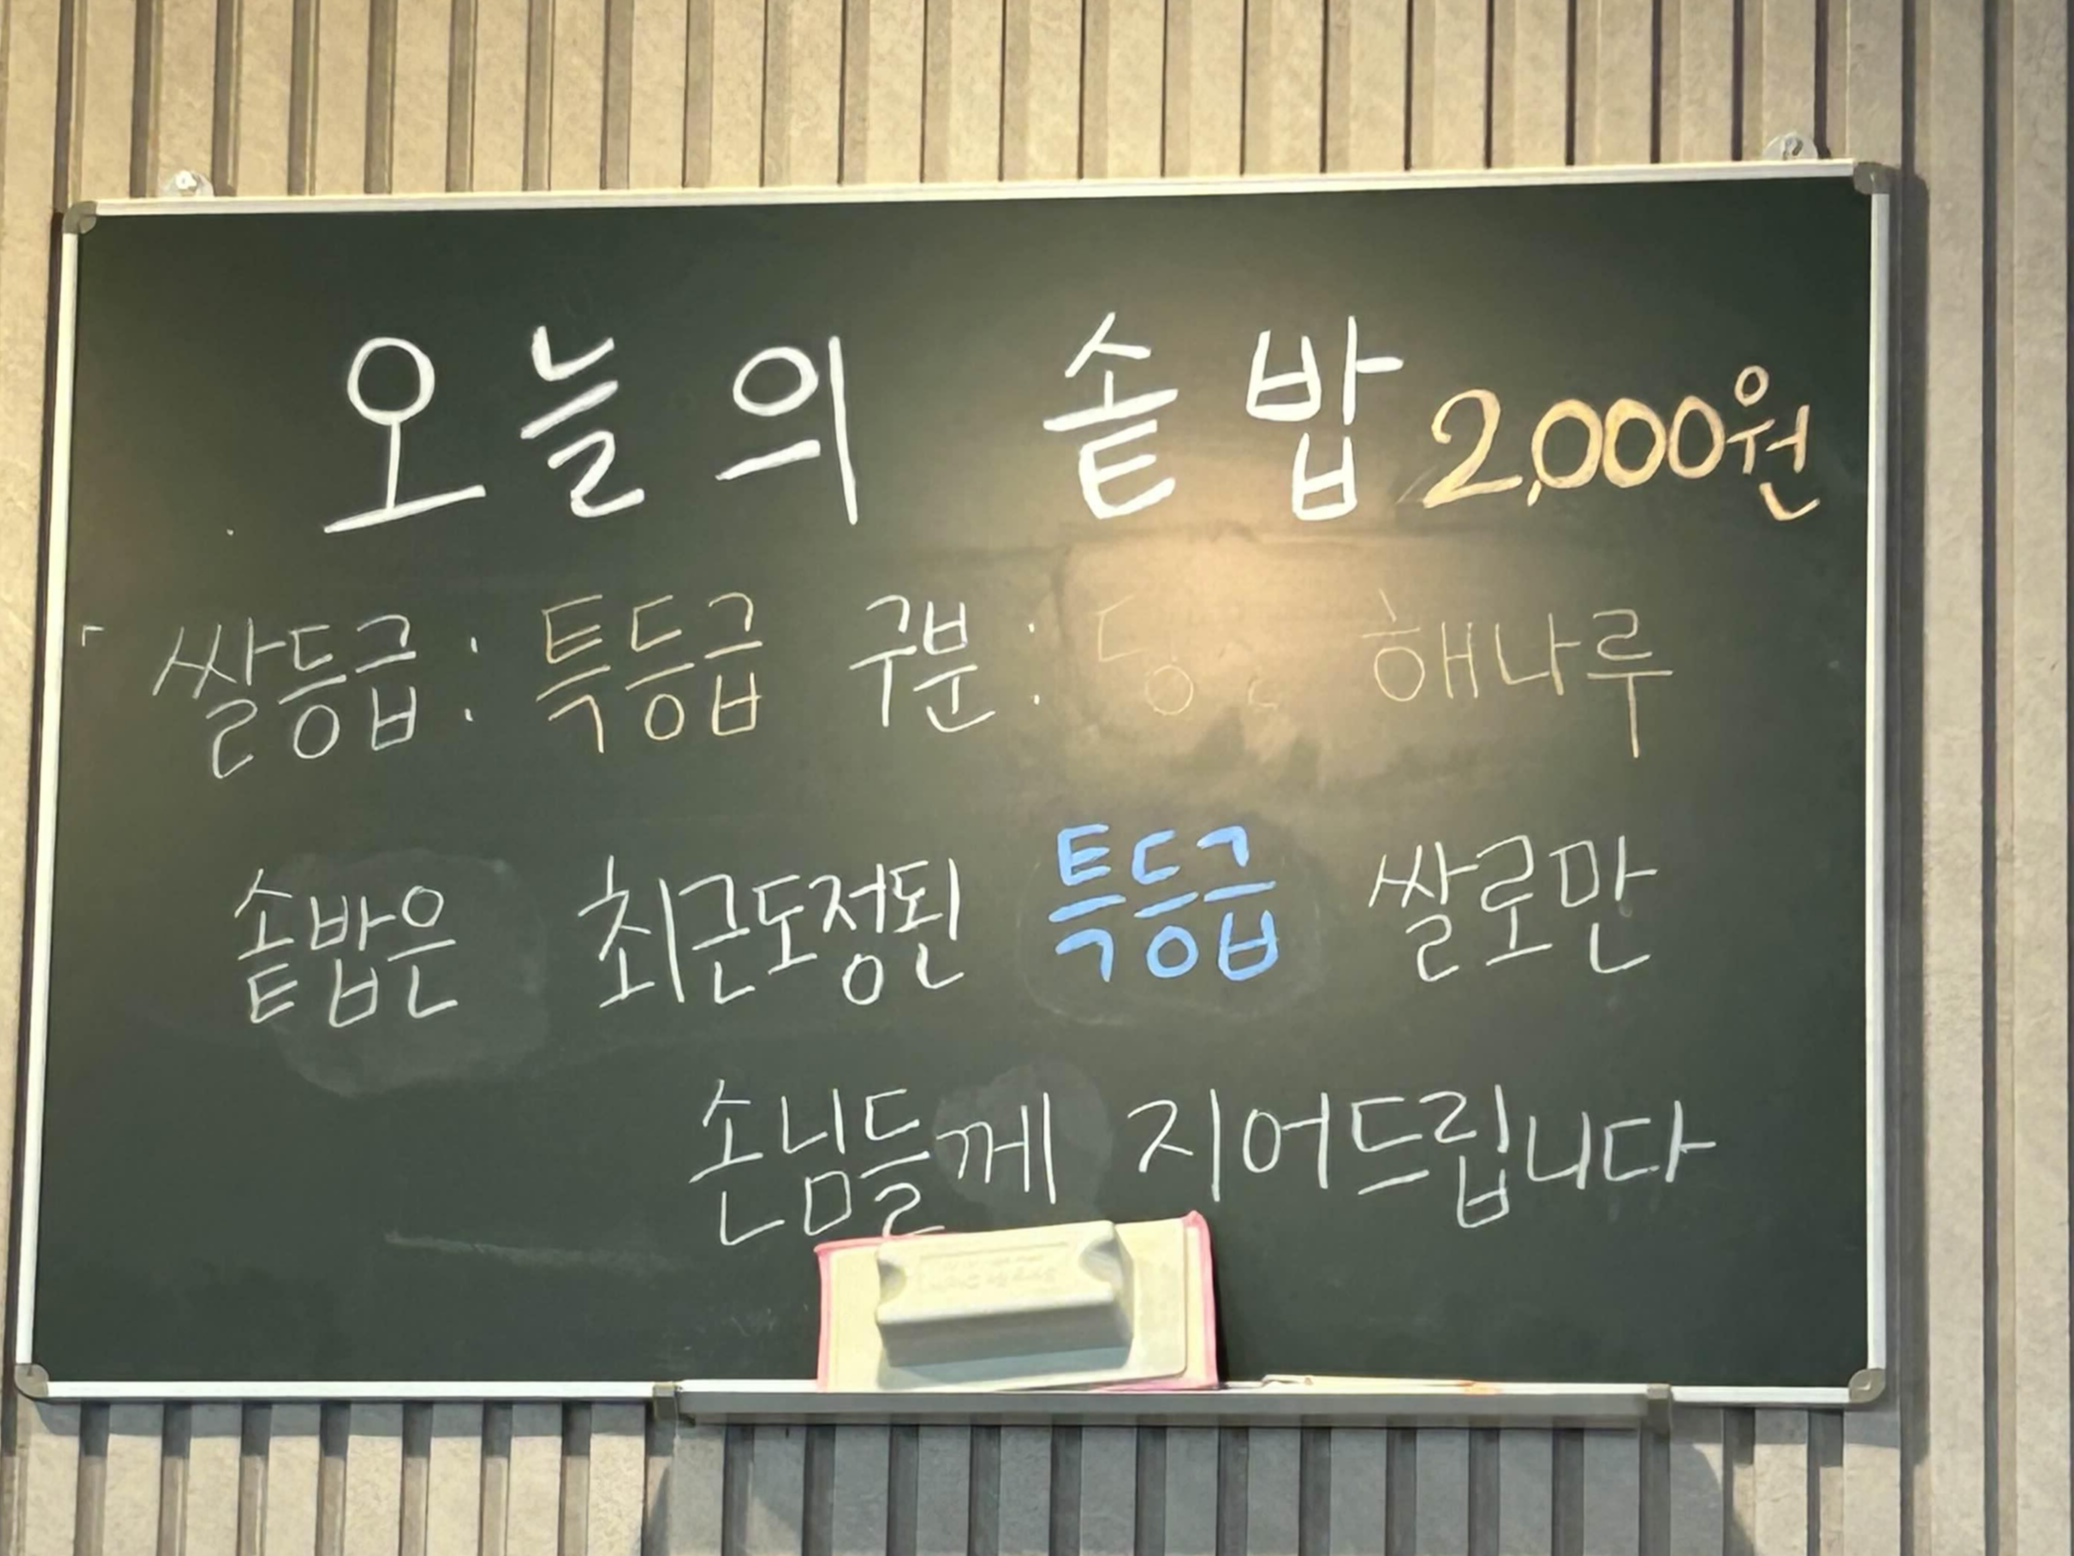 오늘의 솥밥 2,000원
쌀등급 : 특등급 구분 : 해나루
솥밥은 최근도정된 특등급 쌀로만
손님들께 지어드립니다